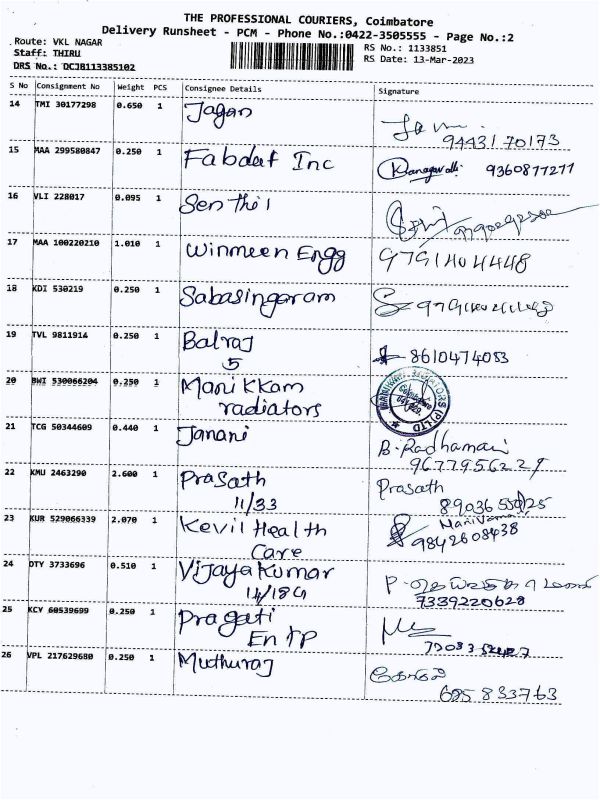 THE PROFESSIONAL COURIERS, Coimbatore
Delivery Runsheet - PCM - Phone No.:0422-3505555 - Page No.:2
Route: VKL NAGAR
RS No.: 1133851
Staff: THIRU
RS Date: 13-Mar-2023
DRS No.: DCJB113385102
S No Consignment No Weight PCS Consignee Details Signature
14 TMI 30177298 0.650 1 Jagan
94431 70173
15 MAA 299580847 0.250 1 Fabdaf Inc Kanagavalli 9360877277
16 VLI 228017 0.095 1 Senthil
17 MAA 100220210 1.010 1 Winmeen Engg 9791404448
18 KDI 530219 0.250 1 Sabasingaram
19 TVL 9811914 0.250 1 Balraj
5 8610474053
20 BWI 530066204 0.250 1 Manikkam
radiators
21 TCG 50344609 0.440 1 Janani B. Radhamani
9677956229
22 KMU 2463290 2.600 1 Prasath Prasath
11/33
23 KUR 529066339 2.070 1 Kevil Health 9842608438
Care
24 OTY 3733696 0.510 1 Vijayakumar
7339220628
25 KCY 60539699 0.250 1 Pragati
En TP
26 VPL 217629680 0.250 1 Muthuraj